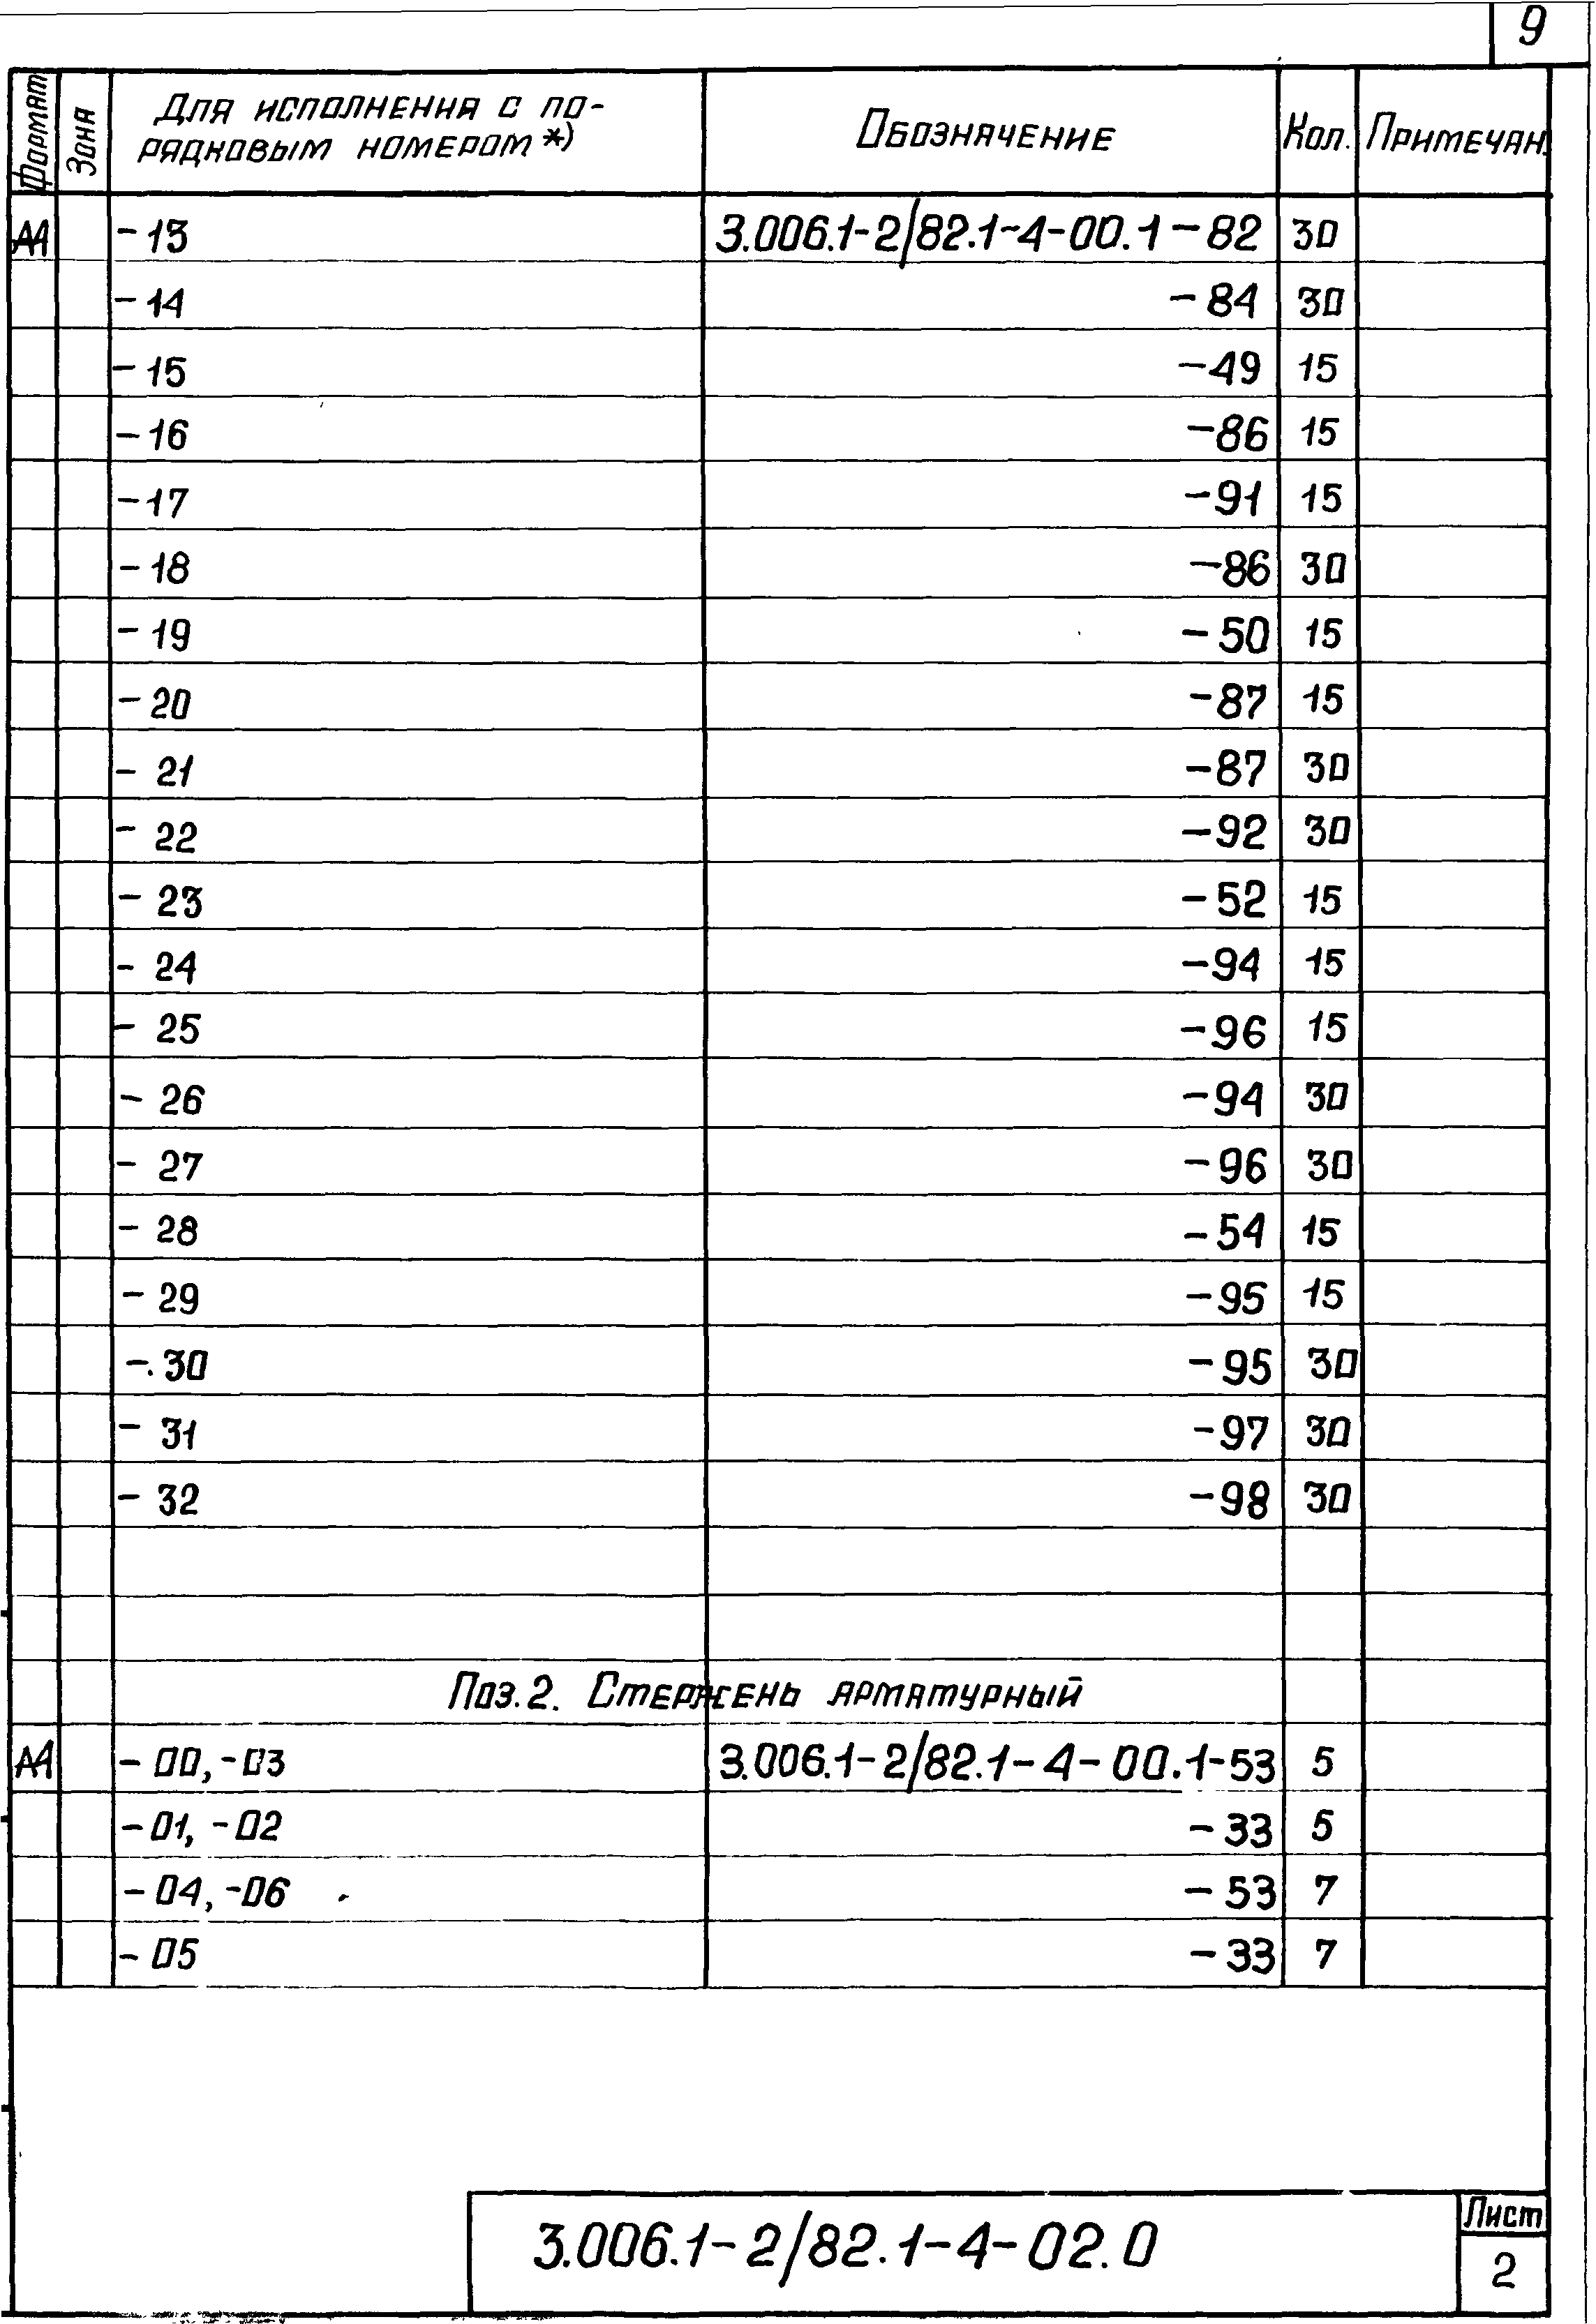 9
Формат
Зона
Для исполнения с по-
рядковым номером *)
Обозначение
Кол.
Примечан.
А4 -13 3.006.1-2/82.1-4-00.1-82 30
-14 -84 30
-15 -49 15
-16 -86 15
-17 -91 15
-18 -86 30
-19 -50 15
-20 -87 15
-21 -87 30
-22 -92 30
-23 -52 15
-24 -94 15
-25 -96 15
-26 -94 30
-27 -96 30
-28 -54 15
-29 -95 15
-30 -95 30
-31 -97 30
-32 -98 30
Поз.2. Стержень арматурный
А4 -00, -03 3.006.1-2/82.1-4-00.1-53 5
-01, -02 -33 5
-04, -06 -53 7
-05 -33 7
3.006.1-2/82.1-4-02.0
Лист
2